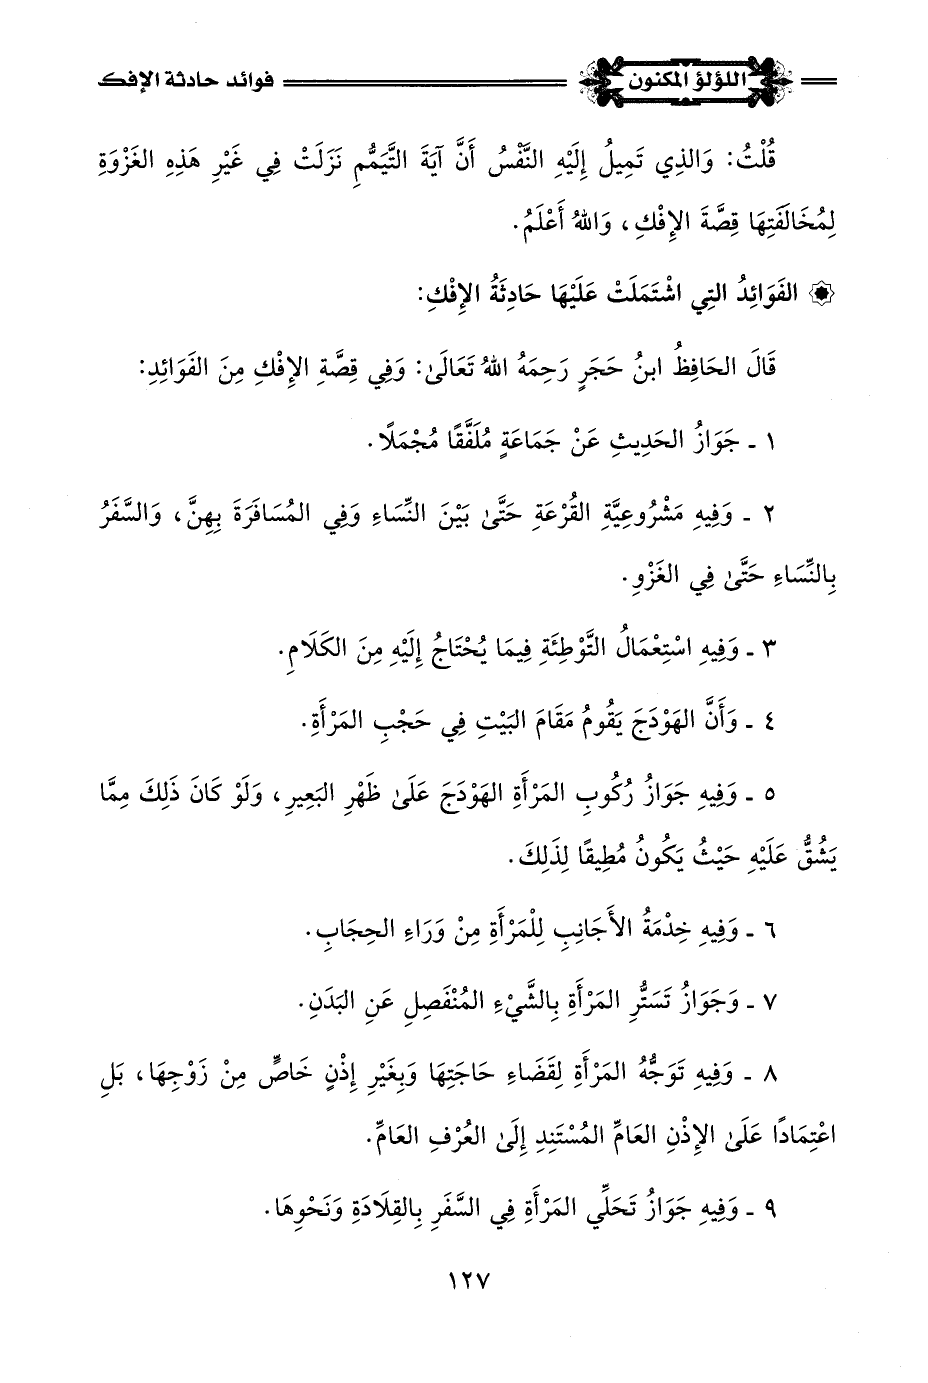 اللؤلؤ المكنون فوائد حادثة الإفك
قُلْتُ: وَالذِي تَمِيلُ إِلَيْهِ النَّفْسُ أَنَّ آيَةَ التَّيَمُّمِ نَزَلَتْ فِي غَيْرِ هَذِهِ الغَزْوَةِ
لِمُخَالَفَتِهَا قِصَّةَ الإِفْكِ، وَاللهُ أَعْلَمُ.
الفَوَائِدُ التِي اشْتَمَلَتْ عَلَيْهَا حَادِثَةُ الإِفْكِ:
قَالَ الحَافِظُ ابنُ حَجَرٍ رَحِمَهُ اللهُ تَعَالَىٰ: وَفِي قِصَّةِ الإِفْكِ مِنَ الفَوَائِدِ:
١ - جَوَازُ الحَدِيثِ عَنْ جَمَاعَةٍ مُلَفَّقًا مُجْمَلًا.
٢ - وَفِيهِ مَشْرُوعِيَّةِ القُرْعَةِ حَتَّىٰ بَيْنَ النِّسَاءِ وَفِي المُسَافَرَةِ بِهِنَّ، وَالسَّفَرُ
بِالنِّسَاءِ حَتَّىٰ فِي الغَزْوِ.
٣ - وَفِيهِ اسْتِعْمَالُ التَّوْطِئَةِ فِيمَا يُحْتَاجُ إِلَيْهِ مِنَ الكَلَامِ.
٤ - وَأَنَّ الهَوْدَجَ يَقُومُ مَقَامَ البَيْتِ فِي حَجْبِ المَرْأَةِ.
٥ - وَفِيهِ جَوَازُ رُكُوبِ المَرْأَةِ الهَوْدَجَ عَلَىٰ ظَهْرِ البَعِيرِ، وَلَوْ كَانَ ذَلِكَ مِمَّا
يَشُقُّ عَلَيْهِ حَيْثُ يَكُونُ مُطِيقًا لِذَلِكَ.
٦ - وَفِيهِ خِدْمَةُ الأَجَانِبِ لِلْمَرْأَةِ مِنْ وَرَاءِ الحِجَابِ.
٧ - وَجَوَازُ تَسَتُّرِ المَرْأَةِ بِالشَّيْءِ المُنْفَصِلِ عَنِ البَدَنِ.
٨ - وَفِيهِ تَوَجُّهُ المَرْأَةِ لِقَضَاءِ حَاجَتِهَا وَبِغَيْرِ إِذْنٍ خَاصٍّ مِنْ زَوْجِهَا، بَلِ
اعْتِمَادًا عَلَىٰ الإِذْنِ العَامِّ المُسْتَنِدِ إِلَىٰ العُرْفِ العَامِّ.
٩ - وَفِيهِ جَوَازُ تَحَلِّي المَرْأَةِ فِي السَّفَرِ بِالقِلَادَةِ وَنَحْوِهَا.
١٢٧